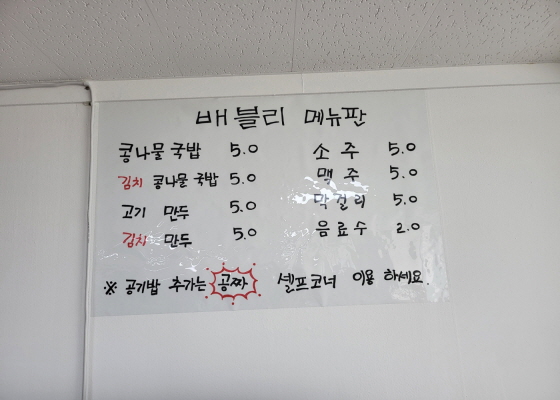 배블리 메뉴판
콩나물국밥 5.0
김치 콩나물 국밥 5.0
고기 만두 5.0
김치 만두 5.0
소주 5.0
맥주 5.0
막걸리 5.0
음료수 2.0
※ 공기밥 추가는 공짜 셀프코너 이용 하세요.